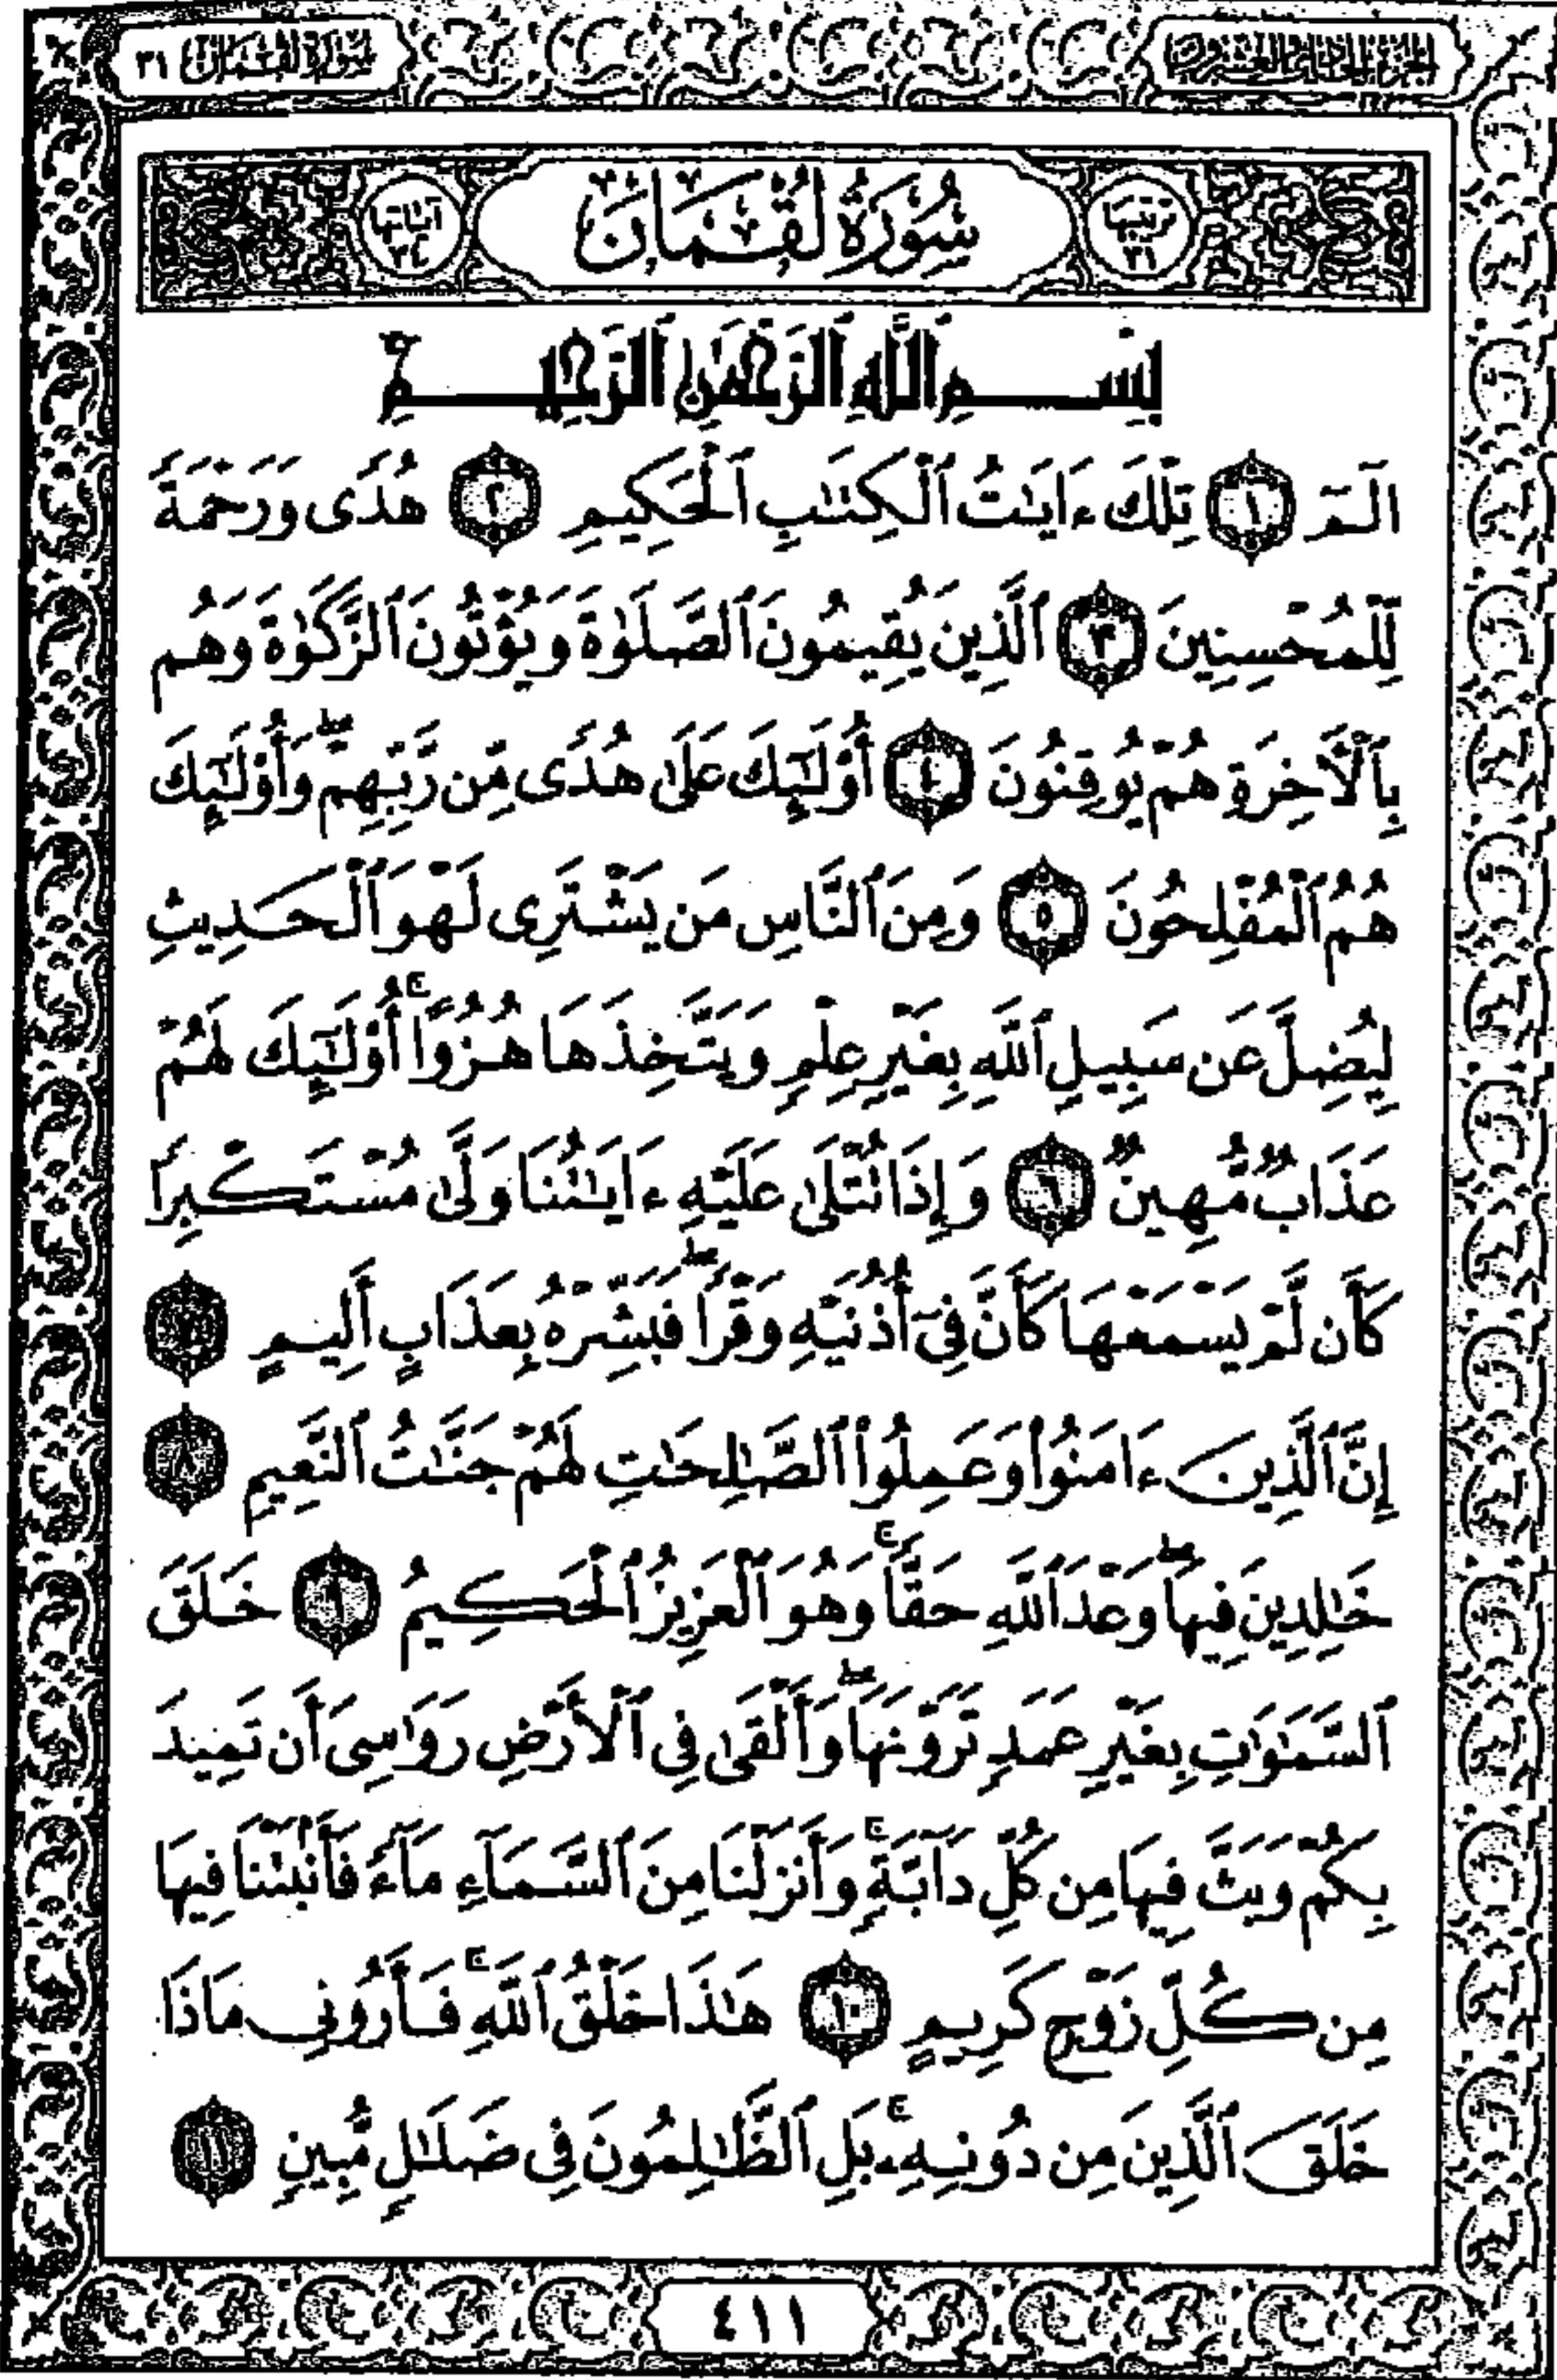 سُورَةُ لُقۡمَانَ ٣١
الجزء الحادي والعشرون
ترتيبها ٣١
سُورَةُ لُقۡمَانَ
آياتها ٣٤
بِسۡمِ ٱللَّهِ ٱلرَّحۡمَٰنِ ٱلرَّحِيمِ
الٓمٓ ١ تِلۡكَ ءَايَٰتُ ٱلۡكِتَٰبِ ٱلۡحَكِيمِ ٢ هُدٗى وَرَحۡمَةٗ
لِّلۡمُحۡسِنِينَ ٣ ٱلَّذِينَ يُقِيمُونَ ٱلصَّلَوٰةَ وَيُؤۡتُونَ ٱلزَّكَوٰةَ وَهُم
بِٱلۡأٓخِرَةِ هُمۡ يُوقِنُونَ ٤ أُوْلَٰٓئِكَ عَلَىٰ هُدٗى مِّن رَّبِّهِمۡۖ وَأُوْلَٰٓئِكَ
هُمُ ٱلۡمُفۡلِحُونَ ٥ وَمِنَ ٱلنَّاسِ مَن يَشۡتَرِي لَهۡوَ ٱلۡحَدِيثِ
لِيُضِلَّ عَن سَبِيلِ ٱللَّهِ بِغَيۡرِ عِلۡمٖ وَيَتَّخِذَهَا هُزُوًاۚ أُوْلَٰٓئِكَ لَهُمۡ
عَذَابٞ مُّهِينٞ ٦ وَإِذَا تُتۡلَىٰ عَلَيۡهِ ءَايَٰتُنَا وَلَّىٰ مُسۡتَكۡبِرٗا
كَأَن لَّمۡ يَسۡمَعۡهَا كَأَنَّ فِيٓ أُذُنَيۡهِ وَقۡرٗاۖ فَبَشِّرۡهُ بِعَذَابٍ أَلِيمٍ ٧
إِنَّ ٱلَّذِينَ ءَامَنُواْ وَعَمِلُواْ ٱلصَّٰلِحَٰتِ لَهُمۡ جَنَّٰتُ ٱلنَّعِيمِ ٨
خَٰلِدِينَ فِيهَاۖ وَعۡدَ ٱللَّهِ حَقّٗاۚ وَهُوَ ٱلۡعَزِيزُ ٱلۡحَكِيمُ ٩ خَلَقَ
ٱلسَّمَٰوَٰتِ بِغَيۡرِ عَمَدٖ تَرَوۡنَهَاۖ وَأَلۡقَىٰ فِي ٱلۡأَرۡضِ رَوَٰسِيَ أَن تَمِيدَ
بِكُمۡ وَبَثَّ فِيهَا مِن كُلِّ دَآبَّةٖۚ وَأَنزَلۡنَا مِنَ ٱلسَّمَآءِ مَآءٗ فَأَنۢبَتۡنَا فِيهَا
مِن كُلِّ زَوۡجٖ كَرِيمٍ ١٠ هَٰذَا خَلۡقُ ٱللَّهِۚ فَأَرُونِي مَاذَا
خَلَقَ ٱلَّذِينَ مِن دُونِهِۦۚ بَلِ ٱلظَّٰلِمُونَ فِي ضَلَٰلٖ مُّبِينٖ ١١
٤١١